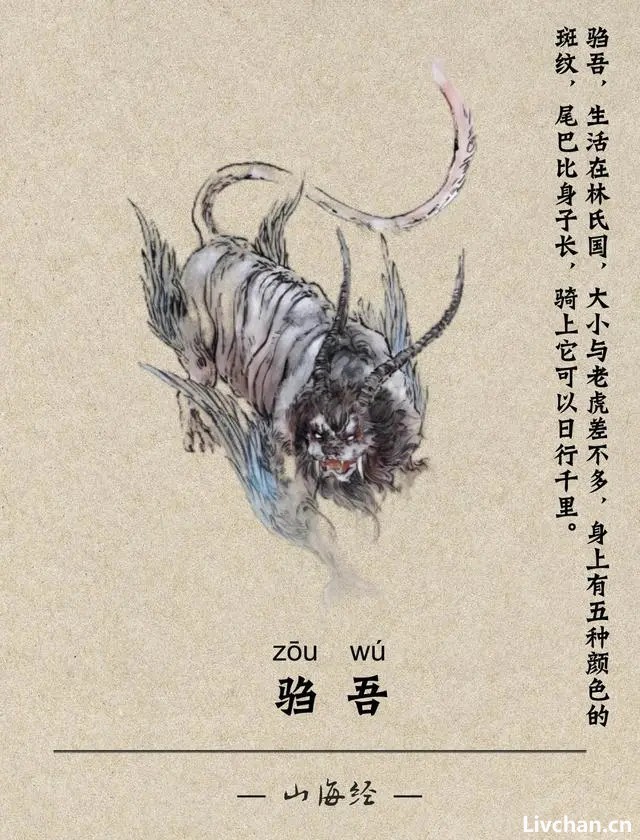 驺吾，生活在林氏国，大小与老虎差不多，身上有五种颜色的
斑纹，尾巴比身子长，骑上它可以日行千里。
zōu wú
驺吾
— 山海经 —
Livchan.cn